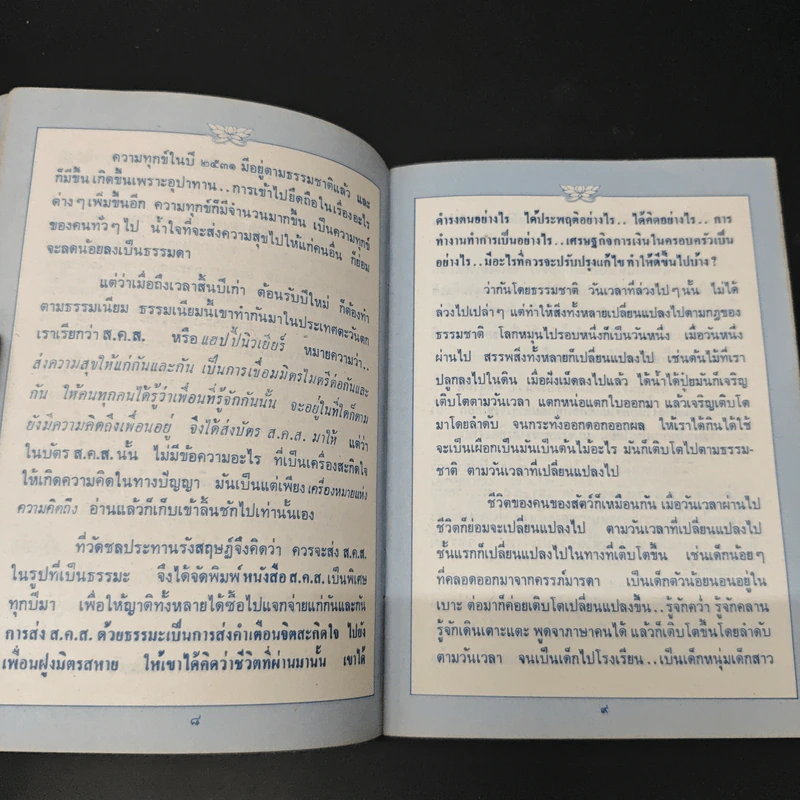 ความทุกข์ในปี ๒๕๓๑ มีอยู่ตามธรรมชาติแล้ว และ
ก็มีขึ้น เกิดขึ้นเพราะอุปาทาน..การเข้าไปยึดถือในเรื่องอะไร
ต่างๆเพิ่มขึ้นอีก ความทุกข์ก็มีจำนวนมากขึ้น เป็นความทุกข์
ของคนทั่วๆไป น้ำใจที่จะส่งความสุขไปให้แก่คนอื่น ก็ย่อม
จะลดน้อยลงเป็นธรรมดา
แต่ว่าเมื่อถึงเวลาสิ้นปีเก่า ต้อนรับปีใหม่ ก็ต้องทำ
ตามธรรมเนียม ธรรมเนียมนี้เขาทำกันมาในประเทศตะวันตก
เราเรียกว่า ส.ค.ส. หรือ แฮปปี้นิวเยียร์ หมายความว่า..
ส่งความสุขให้แก่กันและกัน เป็นการเชื่อมมิตรไมตรีต่อกันและ
กัน ให้คนทุกคนได้รู้ว่าเพื่อนที่รู้จักกันนั้น จะอยู่ในที่ใดก็ตาม
ยังมีความคิดถึงเพื่อนอยู่ จึงได้ส่งบัตร ส.ค.ส. มาให้ แต่ว่า
ในบัตร ส.ค.ส. นั้น ไม่มีข้อความอะไร ที่เป็นเครื่องสะกิดใจ
ให้เกิดความคิดในทางปัญญา มันเป็นแต่เพียง เครื่องหมายแห่ง
ความคิดถึง อ่านแล้วก็เก็บเข้าลิ้นชักไปเท่านั้นเอง
ที่วัดชลประทานรังสฤษฎ์จึงคิดว่า ควรจะส่ง ส.ค.ส.
ในรูปที่เป็นธรรมะ จึงได้จัดพิมพ์ หนังสือ ส.ค.ส. เป็นพิเศษ
ทุกปีมา เพื่อให้ญาติทั้งหลายได้ซื้อไปแจกจ่ายแก่กันและกัน
การส่ง ส.ค.ส. ด้วยธรรมะเป็นการส่งคำเตือนจิตสะกิดใจ ไปยัง
เพื่อนฝูงมิตรสหาย ให้เขาได้คิดว่าชีวิตที่ผ่านมานั้น เขาได้
๘
ดำรงตนอย่างไร ได้ประพฤติอย่างไร.. ได้คิดอย่างไร.. การ
ทำงานทำการเป็นอย่างไร...เศรษฐกิจการเงินในครอบครัวเป็น
อย่างไร..มีอะไรที่ควรจะปรับปรุงแก้ไข ทำให้ดีขึ้นไปบ้าง ?
ว่ากันโดยธรรมชาติ วันเวลาที่ล่วงไป ๆ นั้น ไม่ได้
ล่วงไปเปล่าๆ แต่ทำให้สิ่งทั้งหลายเปลี่ยนแปลงไปตามกฎของ
ธรรมชาติ โลกหมุนไปรอบหนึ่งก็เป็นวันหนึ่ง เมื่อวันหนึ่ง
ผ่านไป สรรพสิ่งทั้งหลายก็เปลี่ยนแปลงไป เช่นต้นไม้ที่เรา
ปลูกลงไปในดิน เมื่อฝังเม็ดลงไปแล้ว ได้น้ำได้ปุ๋ยมันก็เจริญ
เติบโตตามวันเวลา แตกหน่อแตกใบออกมา แล้วเจริญเติบโต
มาโดยลำดับ จนกระทั่งออกดอกออกผล ให้เราได้กินได้ใช้
จะเป็นเผือกเป็นมันเป็นต้นไม้อะไร มันก็เติบโตไปตามธรรม-
ชาติ ตามวันเวลาที่เปลี่ยนแปลงไป
ชีวิตของคนของสัตว์ก็เหมือนกัน เมื่อวันเวลาผ่านไป
ชีวิตก็ย่อมจะเปลี่ยนแปลงไป ตามวันเวลาที่เปลี่ยนแปลงไป
ชั้นแรกก็เปลี่ยนแปลงไปในทางที่เติบโตขึ้น เช่นเด็กน้อยๆ
ที่คลอดออกมาจากครรภ์มารดา เป็นเด็กตัวน้อยนอนอยู่ใน
เบาะ ต่อมาก็ค่อยเติบโตเปลี่ยนแปลงขึ้น..รู้จักคว่ำ รู้จักคลาน
รู้จักเดินเตาะแตะ พูดจาภาษาคนได้ แล้วก็เติบโตขึ้นโดยลำดับ
ตามวันเวลา จนเป็นเด็กไปโรงเรียน..เป็นเด็กหนุ่มเด็กสาว
๙